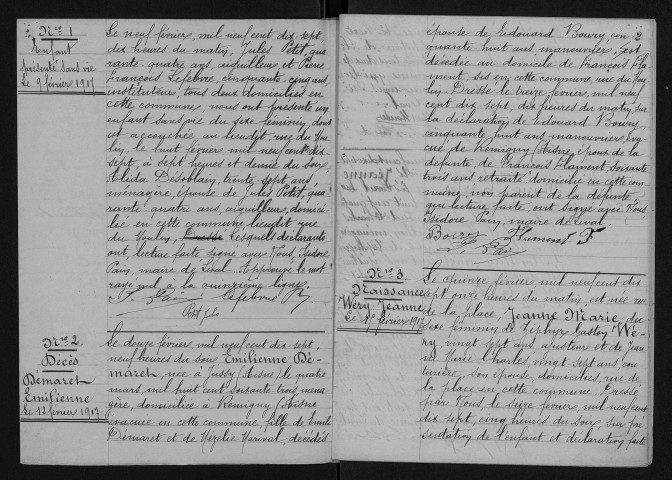 N° 1
Enfant
présenté sans vie
Le 9 février 1917
Le neuf février, mil neuf cent dix-sept
dix heures du matin, Jules Petit, qua
rante-quatre ans, aiguilleur, et Pierre
François Lefebvre, cinquante-cinq ans,
instituteur, tous deux domiciliés en
cette commune, nous ont présenté un
enfant sans vie du sexe féminin, dont
est accouchée, au lieudit, rue du Mou
lin, le huit février mil neuf cent dix-
sept, à sept heures et demie du soir,
trente-sept ans,
ménagère, épouse de Jules Petit, qua
rante-quatre ans, aiguilleur, domici
lié en cette commune, lieudit rue
du Moulin, Dressé lesquels déclarants
ont, lecture faite, signé avec Nous, Isidore
Pain, maire de . Approuvé le mot
rayé nul à la quinzième ligne.
Lefebvre P.
Petit Jules
N° 2
Décès
Démaret
Emilienne
Le 12 février 1917
Le douze février, mil neuf cent dix-sept,
neuf heures du soir, Emilienne Dé-
maret, née à Jussy (Aisne) le quatre
mars, mil huit cent soixante-trois, ména
gère, domiciliée à Remigny (Aisne
évacuée en cette commune, fille de Emile
Démaret et de , décédés
épouse de Edouard Boury, cin-
quante-huit ans, manouvrier, est
décédée au domicile de François Fla
ment sis en cette commune, rue du Mou
lin. Dressé le treize février, mil neuf
cent dix-sept, dix heures du matin, sur
la déclaration de Edouard Boury,
cinquante-huit ans, manouvrier, éva
cué de Remigny Aisne, époux de la
défunte, de François Flament, soixante
trois ans, retraité, domicilié en cette com
mune, non parent de la défunte,
qui, lecture faite, ont signé avec Nous,
Isidore Pain, maire de
Boury Flament F
I. Pain
N° 3.
Naissance
Wéry Jeanne
Le 15 février 1917
Le quinze février, mil neuf cent dix
sept, onze heures du matin, est née rue
de la place, Jeanne Marie, du
sexe féminin, de Zéphyr Gaston Wé-
ry, vingt-sept ans, ajusteur, et de Jean
ne Marie Charles, vingt-sept ans, cou
turière, son épouse, domiciliés, rue de
la place en cette commune. Dressé
par Nous, le seize février, mil neuf cent
dix-sept, cinq heures du soir, sur pré
sentation de l'enfant et déclaration faite